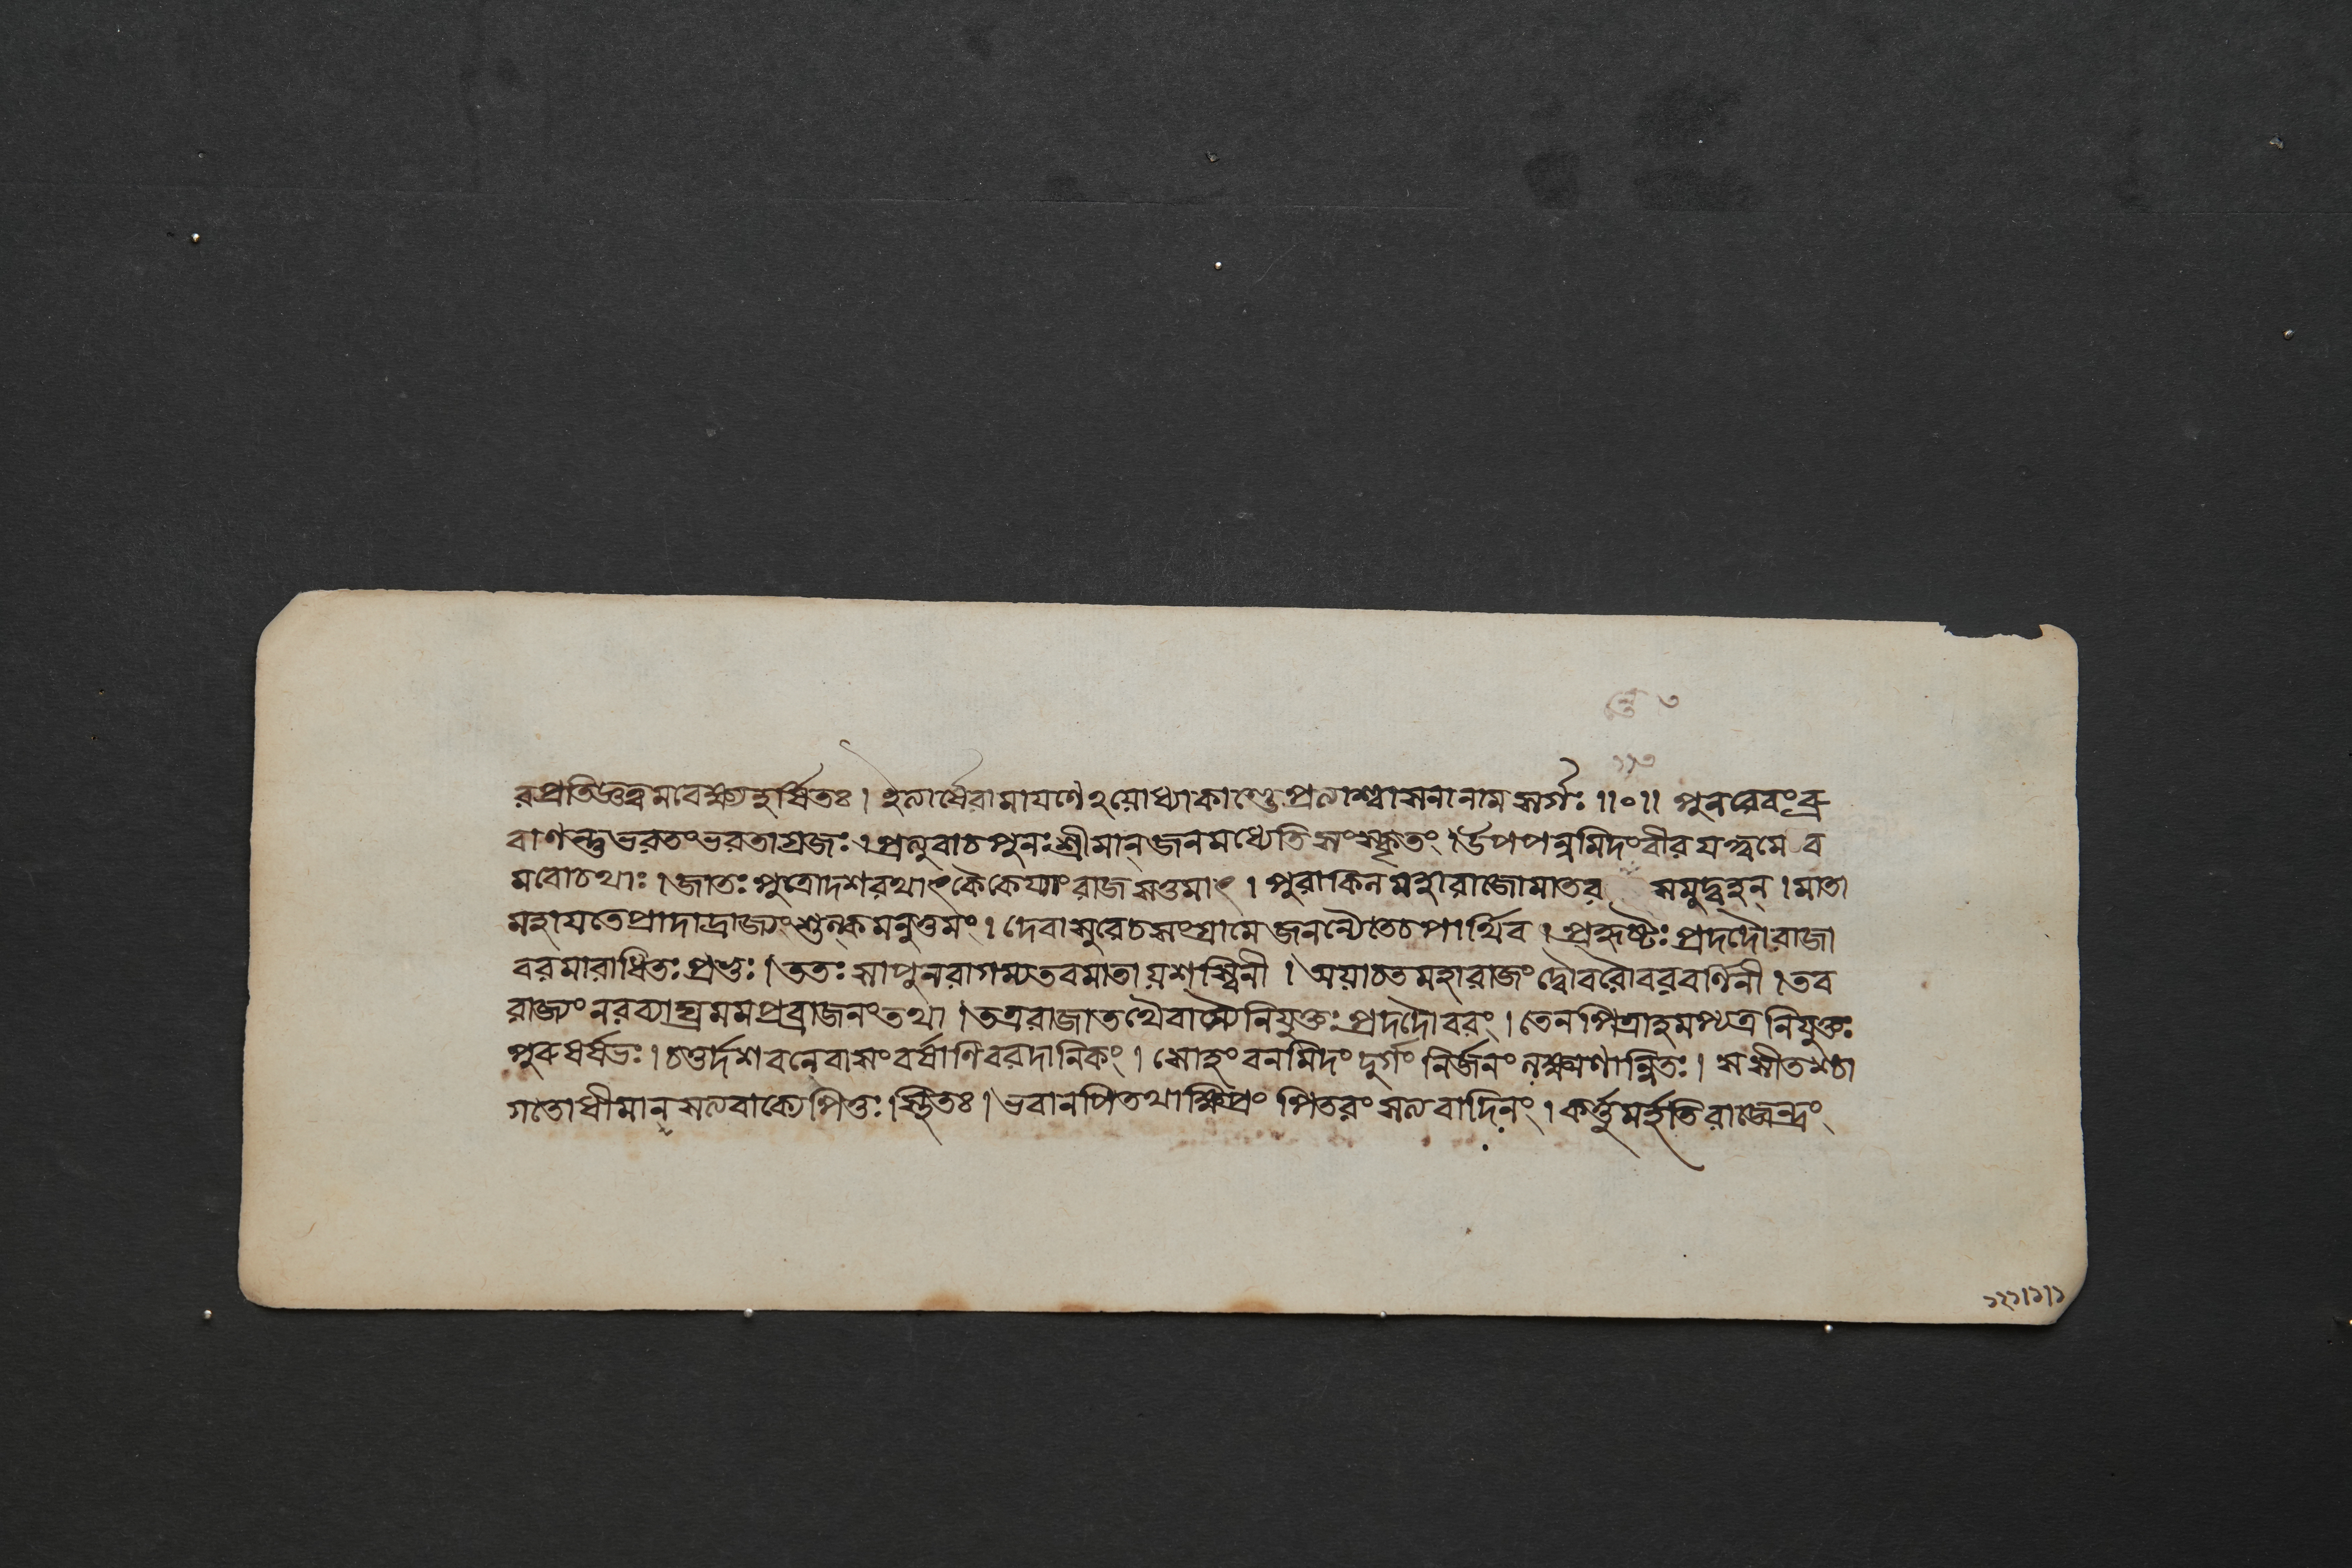 রপ্রতিজ্ঞত্বমবেক্ষ্যহর্ষিতঃ। ইত্যার্ষেরামাযণেঽযোধ্যাকাণ্ডেপ্রত্যাশ্বাসনানামসর্গঃ॥৹॥ পুনরেবংব্রু
বাণন্তুভরতংভরতাগ্রজঃ।প্রত্যুবাচপুনঃশ্রীমান্ জনমধ্যেতিসংস্কৃতং।উপপন্নমিদংবীরযত্ত্বমেব
মবোচথাঃ।জাতঃপুত্রোদশরথাৎকৈকেয্যাংরাজসত্তমাৎ।পুরাকিলমহারাজোমাতর সমুদ্বহন্।মাতা
মহাযতেপ্রাদাদ্রাজ্যংশুল্কমনুত্তমং।দেবাসুরেচসংগ্রামেজনন্যৈতেচপার্থিব।প্রহৃষ্টঃপ্রদদৌরাজা
বরমারাধিতঃপ্রভুঃ।ততঃসাপুনরাগম্যতবমাতাযশস্বিনী।অযাচতমহারাজংদ্বৌবরৌবরবর্ণিনী।তব
রাজ্যংনরব্যাঘ্রমমপ্রব্রাজনংতথা।তত্ররাজাতথৈবাস্যৈনিযুক্তঃপ্রদদৌবরং।তেনপিত্রাহমপ্যত্রনিযুক্তঃ
পুরুষর্ষভঃ।চতুর্দশবনেবাসংবর্ষাণিবরদানিকং।সোহংবনমিদংদুর্গংনির্জনংলক্ষ্মণান্বিতঃ।সসীতশ্চা
গতোধীমান্ সত্যবাক্যেপিতুঃস্থিতঃ।ভবানপিতথাক্ষিপ্রংপিতরংসত্যবাদিনং।কর্ত্তুমর্হতিরাজেন্দ্রং